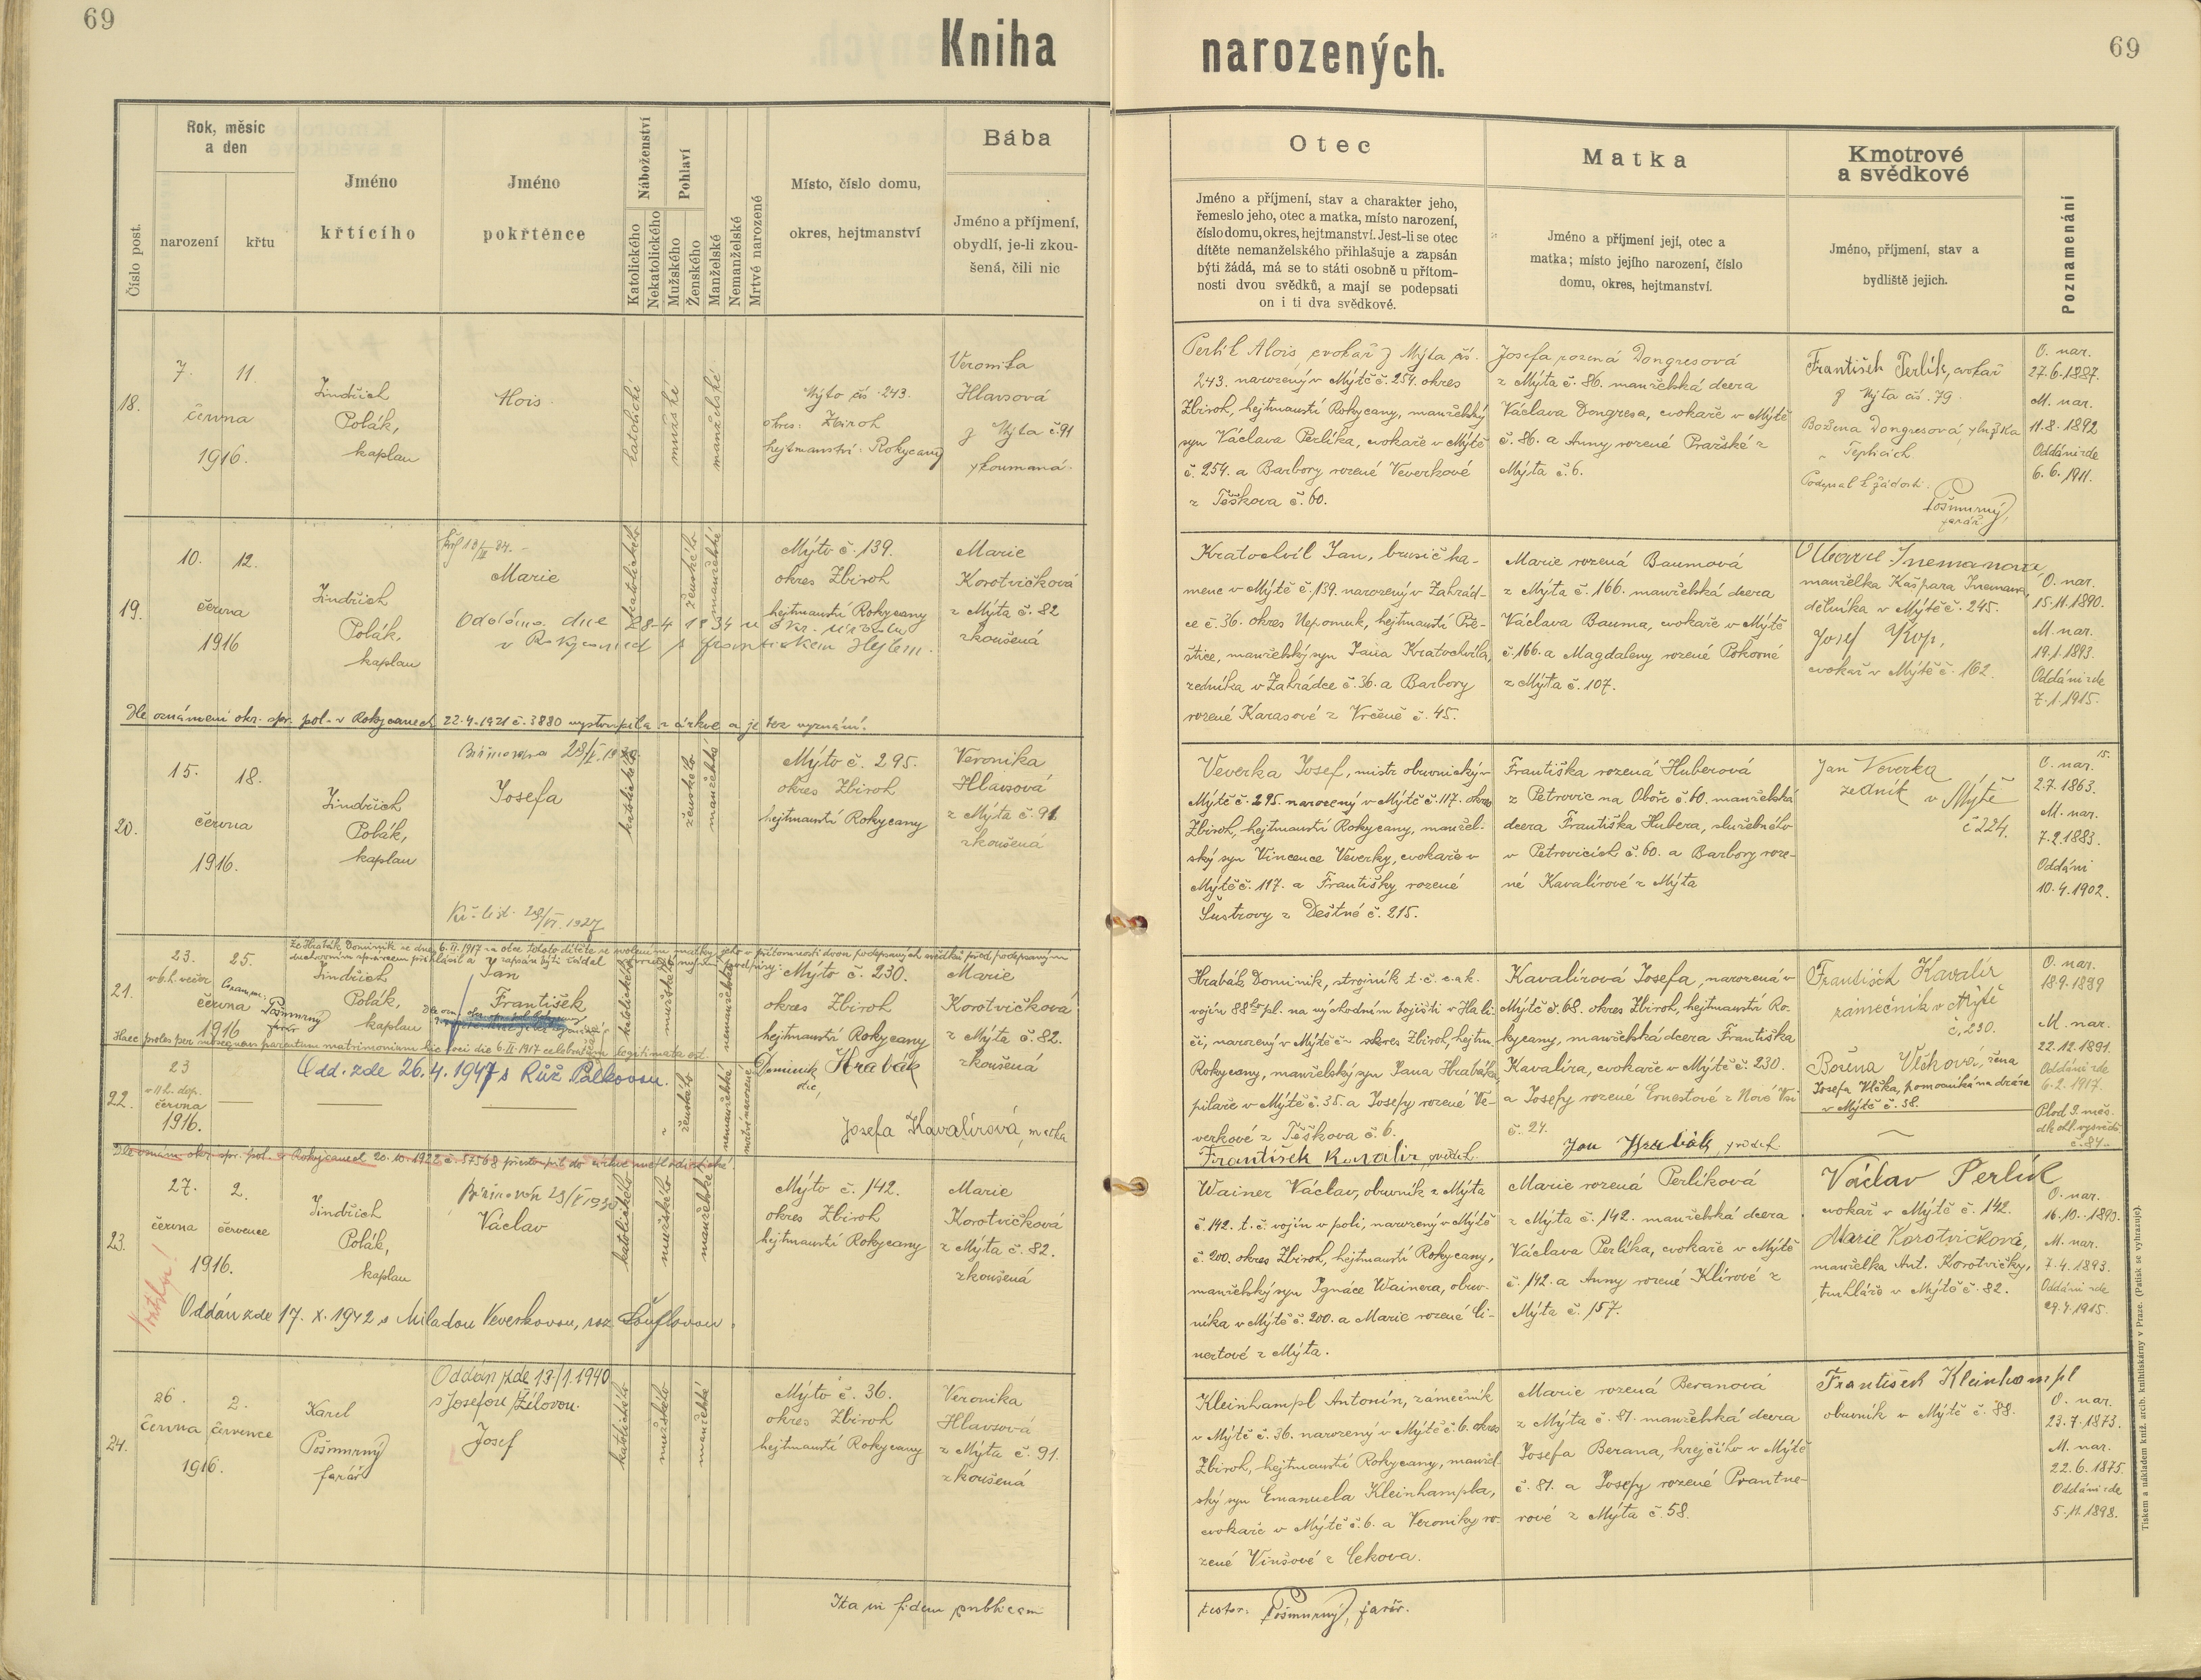 69
Kniha narozených.
69
Číslo post.
Rok, měsíc
a den
narození
křtu
Jméno
křtícího
Jméno
pokřtěnce
Náboženství
Katolického
Nekatolického
Pohlaví
Mužského
Ženského
Manželské
Nemanželské
Mrtvě narozené
Místo, číslo domu,
okres, hejtmanství
Bába
Jméno a příjmení,
obydlí, je-li zkou-
šená, čili nic
Otec
Jméno a příjmení, stav a charakter jeho,
řemeslo jeho, otec a matka, místo narození,
číslo domu, okres, hejtmanství. Jest-li se otec
dítěte nemanželského přihlašuje a zapsán
býti žádá, má se to státi osobně u přítom-
nosti dvou svědků, a mají se podepsati
on i ti dva svědkové.
Matka
Jméno a příjmení její, otec a
matka; místo jejího narození, číslo
domu, okres, hejtmanství.
Kmotrové
a svědkové
Jméno, příjmení, stav a
bydliště jejich.
Poznamenání
18.
7. 11.
června
1916.
Jindřich
Polák,
kaplan
Alois
katolické
mužské
manželské
Mýto čís. 243.
okres: Zbiroh
hejtmanství: Rokycany
Veronika
Hlavsová
z Mýta č. 91
zkoumaná.
Perlík Alois cvokař z Mýta čís.
243. narozený v Mýtě č. 254. okres
Zbiroh, hejtmanství Rokycany, manželský
syn Václava Perlíka, cvokaře v Mýtě
č. 254. a Barbory rozené Veverkové
z Těškova č. 60.
Josefa rozená Dongresová
z Mýta č. 86. manželská dcera
Václava Dongresa, cvokaře v Mýtě
č. 86. a Anny rozené Pražské z
Mýta č. 6.
František Perlík, cvokař
z Mýta čís. 79.
Božena Dongresová,
Teplicích.
Podepsal k žádosti
Pošmurný
farář
O. nar.
27.6.1887.
M. nar.
11.8.1892
Oddáni zde
6.6.1911.
19.
10. 12.
června
1916
Jindřich
Polák,
kaplan
Marie
Oddána dne 28-4 1934 u okr. úřadu
v Rokycanech s Františkem Hejlem.
katolického
ženského
manželské
Mýto č. 139.
okres Zbiroh
hejtmanství Rokycany
Marie
Korotvičková
z Mýta č. 82
zkoušená
Kratochvíl Jan, brusič ka-
mene v Mýtě č. 139. narozený v Zahrád-
ce č. 36. okres Nepomuk, hejtmanství Pře-
štice, manželský syn Jana Kratochvíla,
zedníka v Zahrádce č. 36. a Barbory
rozené Karasové z Vrčeně č. 45.
Marie rozená Baumová
z Mýta č. 166. manželská dcera
Václava Bauma, cvokaře v Mýtě
č. 166. a Magdaleny rozené Pokorné
z Mýta č. 107.
manželka Kašpara
dělníka v Mýtě č. 245.
Josef Kop,
cvokař v Mýtě č. 162.
O. nar.
15.11.1890.
M. nar.
19.1.1893.
Oddáni zde
7.1.1915.
Dle oznámení okr. spr. pol. v Rokycanech 22.4.1921 č. 3880 vystoupila z církve a je bez vyznání.
20.
15. 18.
června
1916.
Jindřich
Polák,
kaplan
Josefa
katolického
ženského
manželské
Mýto č. 295.
okres Zbiroh
hejtmanství Rokycany
Veronika
Hlavsová
z Mýta č. 91.
zkoušená
Veverka Josef, mistr obuvnický v
Mýtě č. 295. narozený v Mýtě č. 117. okres
Zbiroh, hejtmanství Rokycany, manžel-
ský syn Vincence Veverky, cvokaře v
Mýtě č. 117. a Františky rozené
Šustrovy z Deštné č. 215.
Františka rozená Huberová
z Petrovic na Oboře č. 60. manželská
dcera Františka Hubera, služebného
v Petrovicích č. 60. a Barbory roze-
né Kavalírové z Mýta
Jan Veverka
zedník v Mýtě
č 224.
O. nar.
2.7.1863.
M. nar.
7.2.1883.
Oddáni
10.4.1902.
Kř. list. 29/VI. 1927
21.
23. 25.
června
1916
Jindřich
Polák,
kaplan
Jan
František
katolického
mužského
nemanželské
Mýto č. 230.
okres Zbiroh
hejtmanství Rokycany
Marie
Korotvičková
z Mýta č. 82.
zkoušená
Hrabák Dominik, strojník t. č. c. a k.
vojín 88ho pl. na východním bojišti v Hali-
či, narozený v Mýtě č. okres Zbiroh, hejtm.
Rokycany, manželský syn Jana Hrabáka,
pilaře v Mýtě č. 35. a Josefy rozené Ve-
verkové z Těškova č. 6.
František Kavalír, svědek
Kavalírová Josefa, narozená v
Mýtě č. 68. okres Zbiroh, hejtmanství Ro-
kycany, manželská dcera Františka
Kavalíra, cvokaře v Mýtě č. 230.
a Josefy rozené Ernestové z Nové Vsi
č. 24.
Jan Hrabák, svědek.
František Kavalír
zámečník v Mýtě
č. 230.
Božena Vlčková, žena
Josefa Vlčka, pomocníka na dráze
v Mýtě č. 38.
O. nar.
18.9.1899
M. nar.
22.12.1891.
Oddáni zde
6.2.1917.
Haec proles per subsequens parentum matrimonium hic loci die 6.II.1917 celebratum legitimata est.
Odd. zde 26.4.1947 s Růž. Palkovou.
Dominik Hrabák
otec
Josefa Kavalírová, matka
22.
23
června
1916.
ženského
nemanželské
mrtvě narozené
Plod 9. měs.
dle ohl. vysvědč.
č. 84.
Dle oznám. okr. spr. pol. v Rokycanech 20.10.1922 č. 57568 přestoupil do církve
23.
27. 2.
června července
1916.
Jindřich
Polák,
kaplan
Václav
katolického
mužského
manželské
Mýto č. 142.
okres Zbiroh
hejtmanství Rokycany
Marie
Korotvičková
z Mýta č. 82.
zkoušená
Wainer Václav, obuvník z Mýta
č. 142. t. č. vojín v poli, narozený v Mýtě
č. 200. okres Zbiroh, hejtmanství Rokycany,
manželský syn Ignáce Wainera, obuv-
níka v Mýtě č. 200. a Marie rozené Li-
nertové z Mýta.
Marie rozená Perlíková
z Mýta č. 142. manželská dcera
Václava Perlíka, cvokaře v Mýtě
č. 142. a Anny rozené Klírové z
Mýta č. 157.
Václav Perlík
cvokař v Mýtě č. 142.
Marie Korotvičková,
manželka Ant. Korotvičky,
truhláře v Mýtě č. 82.
O. nar.
16.10.1890.
M. nar.
7.4.1893.
Oddáni zde
29.4.1915.
Oddán zde 17. X. 1942 s Miladou Veverkovou, roz. Šouflovou.
24.
26. 2.
června července
1916.
Karel
Pošmurný
farář
Oddán zde 13/1.1940
s Josefou Žílovou.
Josef
katolického
mužského
manželské
Mýto č. 36.
okres Zbiroh
hejtmanství Rokycany
Veronika
Hlavsová
z Mýta č. 91.
zkoušená
Kleinhampl Antonín, zámečník
v Mýtě č. 36. narozený v Mýtě č. 6. okres
Zbiroh, hejtmanství Rokycany, manžel-
ský syn Emanuela Kleinhampla,
cvokaře v Mýtě č. 6. a Veroniky ro-
zené Vinšové z Cekova.
Marie rozená Beranová
z Mýta č. 81. manželská dcera
Josefa Berana, krejčího v Mýtě
č. 81. a Josefy rozené Prantne-
rové z Mýta č. 58.
František Kleinhampl
obuvník v Mýtě č. 88.
O. nar.
23.7.1873.
M. nar.
22.6.1875.
Oddáni zde
5.11.1898.
Ita in fidem publicam
testor: Pošmurný, farář.
Tiskem a nákladem kníž. arcib. knihtiskárny v Praze. (Patisk se vyhrazuje).